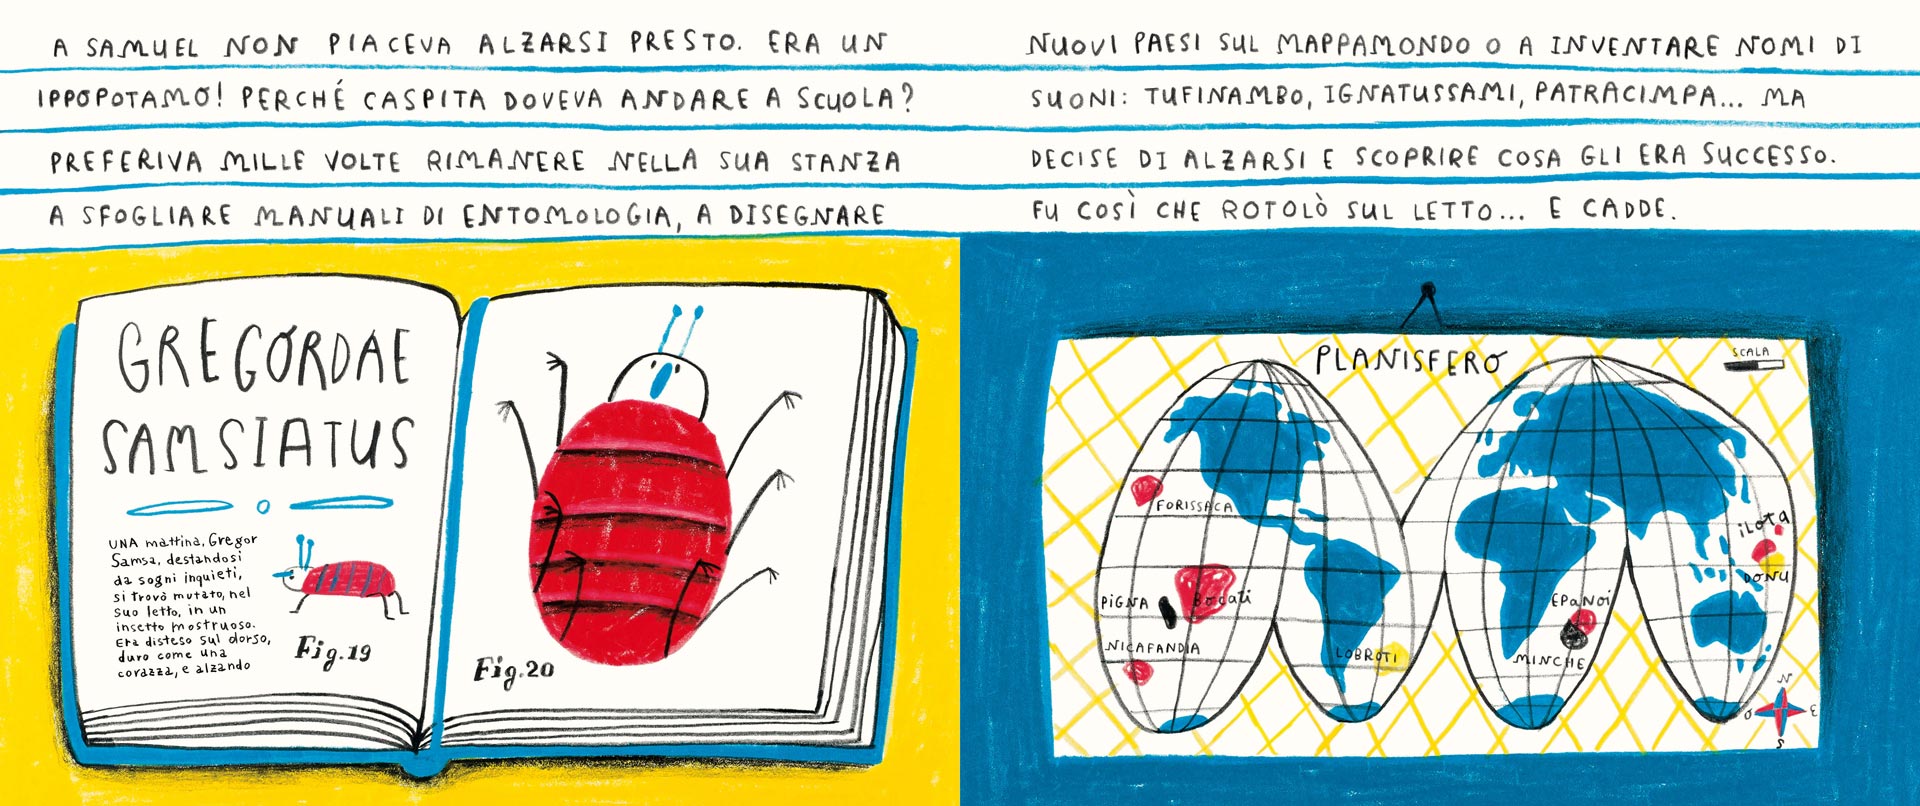 A SAMUEL NON PIACEVA ALZARSI PRESTO. ERA UN
IPPOPOTAMO! PERCHÉ CASPITA DOVEVA ANDARE A SCUOLA?
PREFERIVA MILLE VOLTE RIMANERE NELLA SUA STANZA
A SFOGLIARE MANUALI DI ENTOMOLOGIA, A DISEGNARE
GREGORDAE
SAMSIATUS
UNA mattina, Gregor
Samsa, destandosi
da sogni inquieti,
si trovò mutato, nel
suo letto, in un
insetto mostruoso.
Era disteso sul dorso,
duro come una
corazza, e alzando
Fig.19
Fig.20
NUOVI PAESI SUL MAPPAMONDO O A INVENTARE NOMI DI
SUONI: TUFINAMBO, IGNATUSSAMI, PATRACIMPA... MA
DECISE DI ALZARSI E SCOPRIRE COSA GLI ERA SUCCESSO.
FU COSÌ CHE ROTOLÒ SUL LETTO... E CADDE.
PLANISFERO
SCALA
FORISSACA
iLOTA
DONU
PIGNA
Bocati
EPANOI
NICAFANDIA
LOBROTI
MINCHE
N
O
E
S